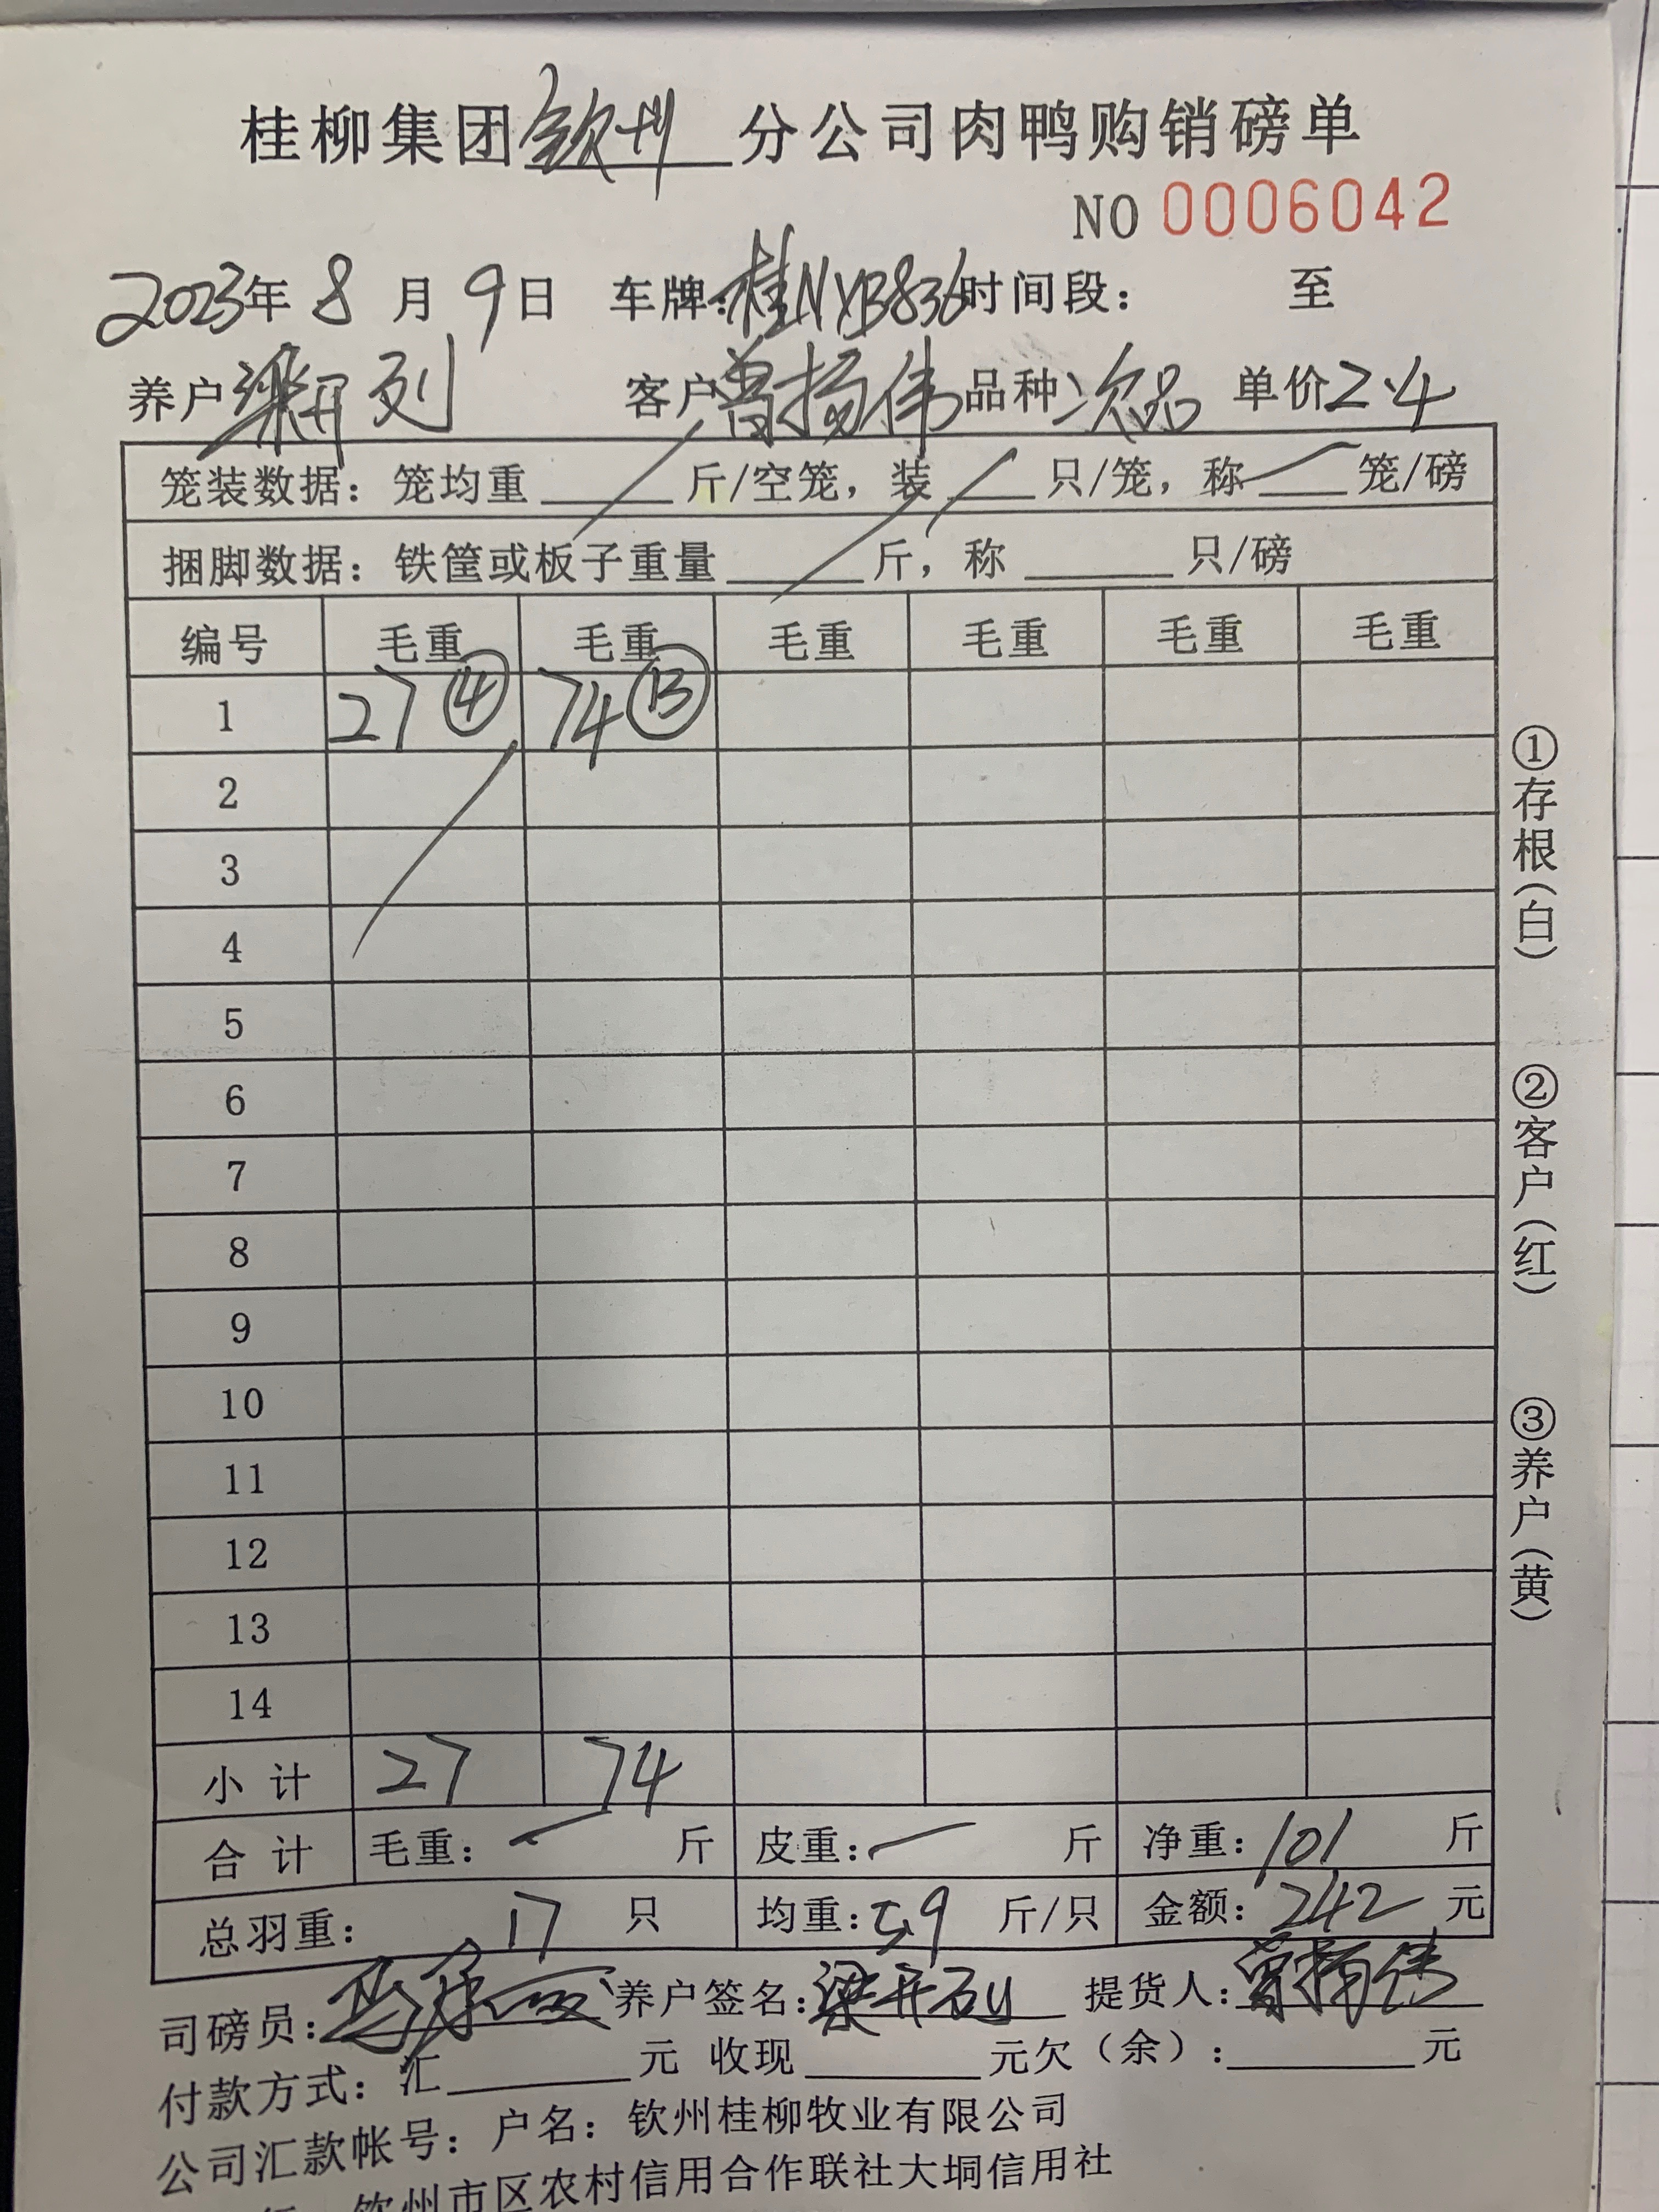 桂柳集团钦州分公司肉鸭购销磅单
NO 0006042
2023年8月9日 车牌:桂NYB836时间段： 至
养户梁开列 客户曾扬伟品种次品 单价2.4
笼装数据：笼均重______斤/空笼，装____只/笼，称____笼/磅
捆脚数据：铁筐或板子重量______斤，称______只/磅
编号 毛重 毛重 毛重 毛重 毛重 毛重
1 27④ 74⑬
2
3
4
5
6
7
8
9
10
11
12
13
14
小计 27 74
合计 毛重： 斤 皮重： 斤 净重：101斤
总羽重：17只 均重：5.9斤/只 金额：242元
司磅员： 养户签名：梁开列 提货人：曾扬伟
付款方式：汇______元 收现______元欠（余）：______元
公司汇款帐号：户名：钦州桂柳牧业有限公司
钦州市区农村信用合作联社大垌信用社
①存根（白） ②客户（红） ③养户（黄）